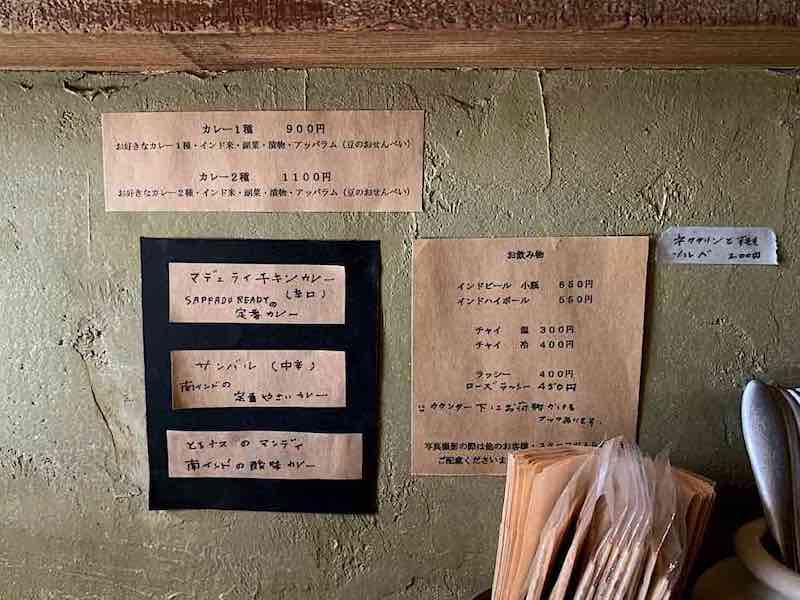 カレー1種　　900円
お好きなカレー1種・インド米・副菜・漬物・アッパラム(豆のおせんべい)
カレー2種　　1100円
お好きなカレー2種・インド米・副菜・漬物・アッパラム(豆のおせんべい)
マデュライチキンカレー
(辛口)
SAPPADU READYの
定番カレー
サンバル (中辛)
南インドの
定番やさいカレー
とまナスのマンディ
南インドの酸味カレー
お飲み物
インドビール　小瓶　650円
インドハイボール　550円
チャイ　温　300円
チャイ　冷　400円
ラッシー　400円
ローズラッシー 450円
カウンター下にお荷物かける
フックあります。
写真撮影の際は他のお客様・
ご配慮ください
200円